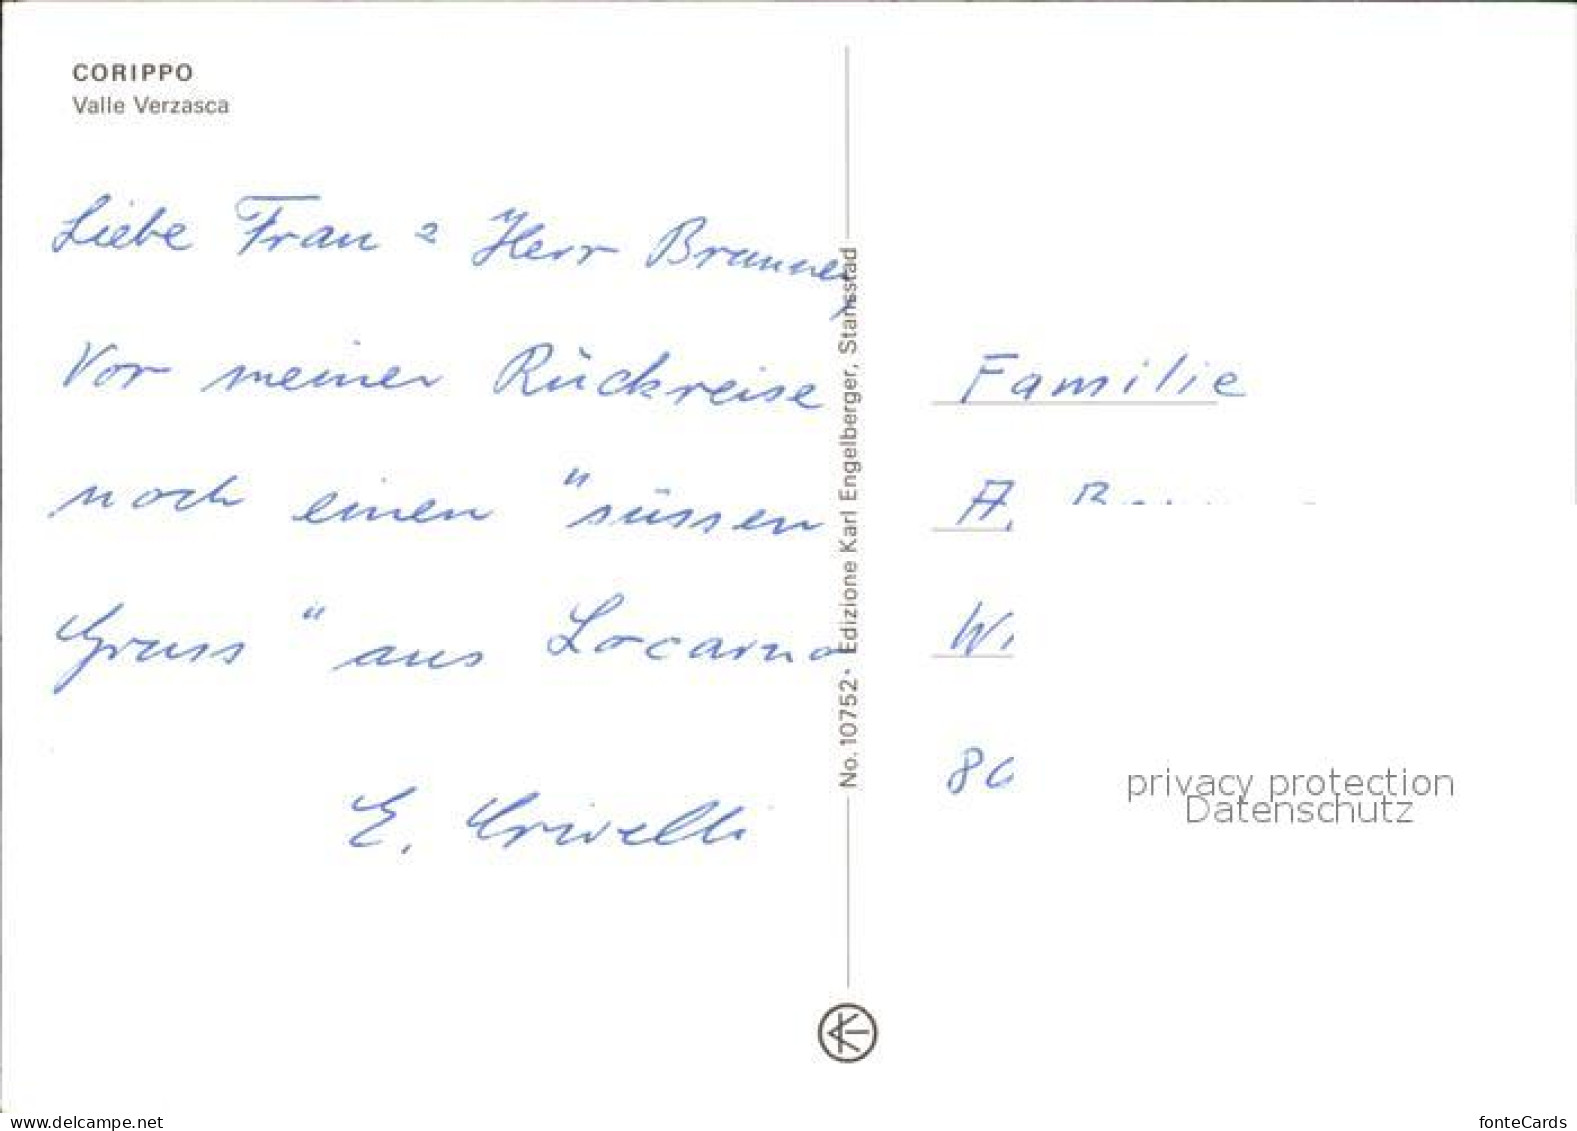 CORIPPO
Valle Verzasca
Liebe Frau & Herr Brunner,
Vor meiner Rückreise
noch einen "süssen
Gruss" aus Locarno
E. Crivelli
No. 10752 · Edizione Karl Engelberger, Stansstad
Familie
A.
W.
80
privacy protection
Datenschutz
www.delcampe.net
fonteCards